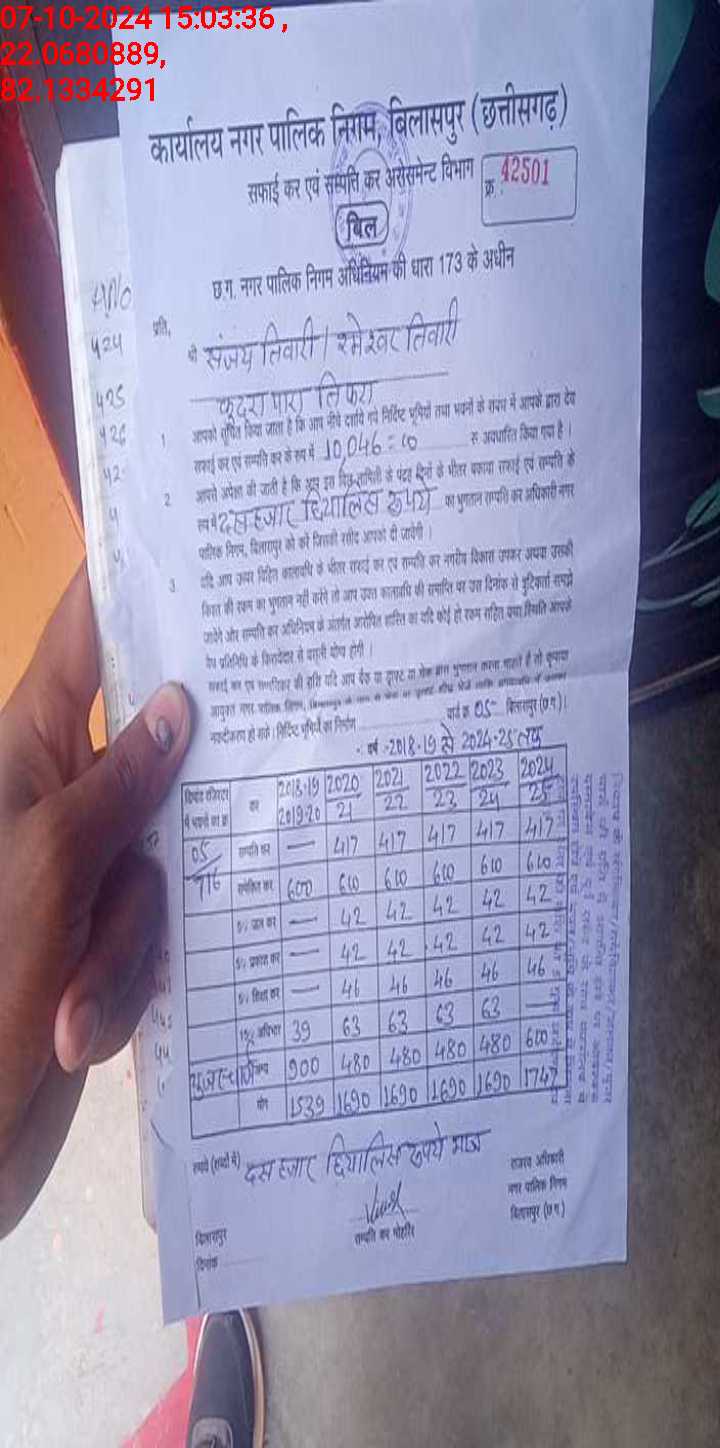 07-10-2024 15:03:36 ,
22.0680889,
82.1334291
कार्यालय नगर पालिक निगम, बिलासपुर (छत्तीसगढ़)
सफाई कर एवं सम्पति कर असेसमेन्ट विभाग
क्र. 42501
बिल
छ.ग. नगर पालिक निगम अधिनियम की धारा 173 के अधीन
प्रति,
श्री संजय तिवारी / रमेश्वर तिवारी
कुदरा पारा तिफरा
1 आपको सूचित किया जाता है कि आप नीचे दर्शाये गये निर्दिष्ट भूमियों तथा भवनों के संबंध में आपके द्वारा देय
सफाई कर एवं सम्पति कर के रूप में 10,046=00 रू अवधारित किया गया है।
2 आपसे अपेक्षा की जाती है कि आप इस बिल तामिली के पंद्रह दिनों के भीतर बकाया सफाई एवं सम्पति के
रूप में दस हजार छियालिस रूपये का भुगतान सम्पति कर अधिकारी नगर
पालिक निगम, बिलासपुर को करें जिसकी रसीद आपको दी जायेगी।
3 यदि आप ऊपर विहित कालावधि के भीतर सफाई कर एवं सम्पति कर नगरीय विकास उपकर अथवा उसकी
किश्त की रकम का भुगतान नहीं करेंगे तो आप उक्त कालावधि की समाप्ति पर उस दिनांक से त्रुटिकर्ता समझे
जावेगे और सम्पति कर अधिनियम के अंतर्गत आरोपित शास्ति का यदि कोई हो रकम सहित यथा स्थिति आपके
वैध प्रतिनिधि के किरायेदार से वसूली योग्य होगी।
सफाई कर एवं सम्पतिकर की राशि यदि आप बैंक या ड्राफ्ट या चेक द्वारा भुगतान करना चाहते है तो कृपया
आयुक्त नगर पालिक निगम, बिलासपुर के नाम से
नगदीकरण हो सके। निर्दिष्ट भूमियों का विवरण वार्ड क्र. 05 बिलासपुर (छ.ग.)।
वर्ष -2018-19 से 2024-25 तक
डिमांड रजिस्टर में भवनों का क्र कर 2018-19 2019-20 2020 21 2021 22 2022 23 2023 24 2024 25
05 सम्पति कर — 417 417 417 417 417
716 समेकित कर 600 610 610 610 610 610
5% जल कर — 42 42 42 42 42
5% प्रकाश कर — 42 42 42 42 42
5% शिक्षा कर — 46 46 46 46 46
अधिभार 39 63 63 63 63 —
यूजर चार्ज अन्य 900 480 480 480 480 600
योग 1539 1690 1690 1690 1690 1747
रूपये (शब्दों में) दस हजार छियालिस रूपये मात्र
राजस्व अधिकारी
नगर पालिक निगम
बिलासपुर (छ.ग.)
सम्पति कर मोहर्रिर
बिलासपुर
दिनांक
424
425
426